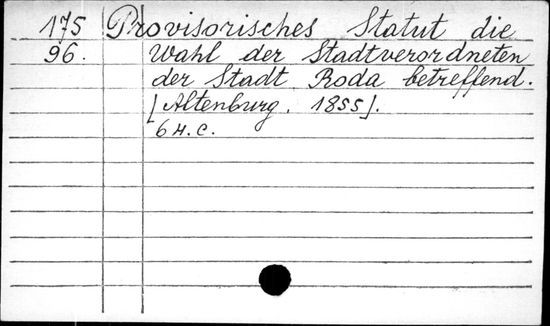 175 Provisorisches Statut die
96. Wahl der Stadtverordneten
der Stadt Roda betreffend.
[Altenburg. 1855].
6 н.с.